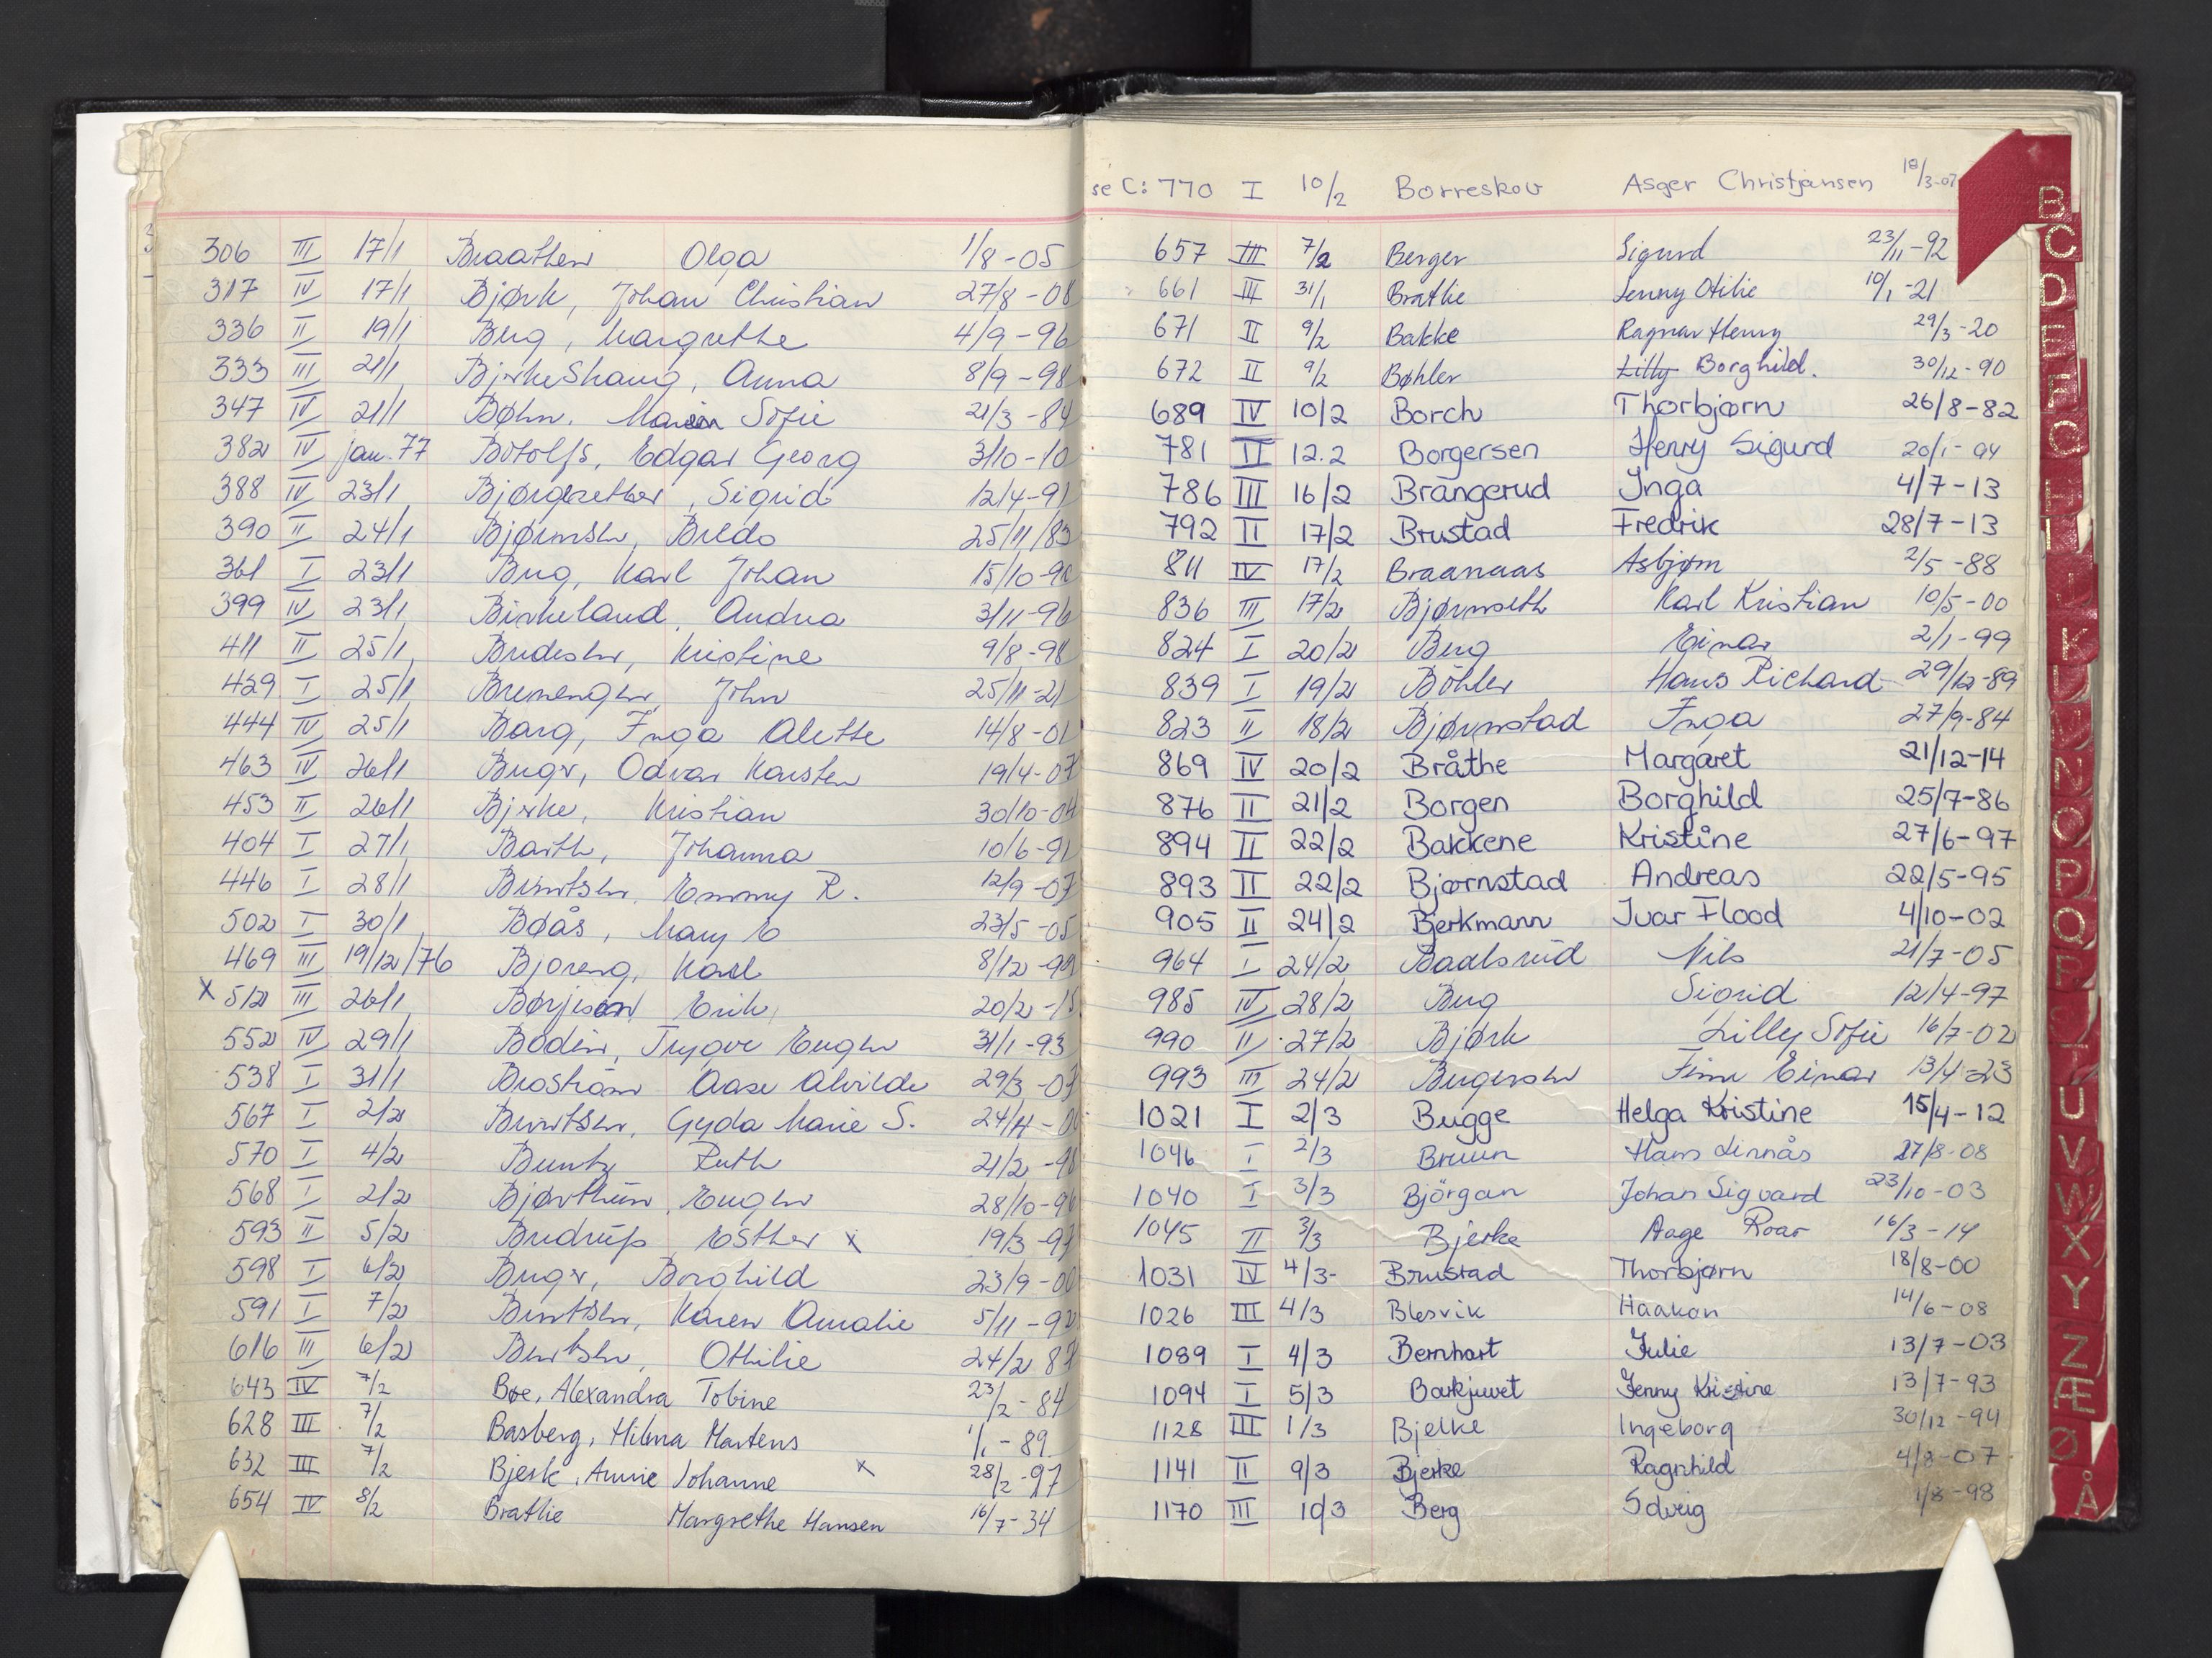 306 III 17/1 Braathen Olga 1/8-05
317 IV 17/1 Bjørk, Johan Christian 27/8-08
336 II 19/1 Berg, Margrethe 4/9-96
333 III 21/1 Bjerkeshaug, Anna 8/9-98
347 IV 21/1 Bøhn, Maren Sofie 21/3-84
382 IV jan.77 Botolfs, Edgar Georg 3/10-10
388 IV 23/1 Sigrid 12/4-91
390 II 24/1 Bjørnsen, Bredo 25/11/83
361 I 23/1 Berg, Karl Johan 15/10-90
399 IV 23/1 Birkeland, Andrea 3/11-96
411 II 25/1 Bredesen, Kristine 9/8-98
429 I 25/1 John 25/11-21
444 IV 25/1 Barg, Inga Alette 14/8-01
463 IV 26/1 Berger, Odvar Karsten 19/4-07
453 II 26/1 Bjerke, Kristian 30/10-04
404 I 27/1 Barth, Johanna 10/6-91
446 I 28/1 Berntsen, Emmy R. 12/9-07
502 I 30/1 Boås, Mary E 23/5-05
469 III 19/12/76 Bjoreng, Karl 8/12-99
x 512 III 26/1 Børjeson Erik 20/2-15
552 IV 29/1 Bodin, Trygve Eugen 31/1-93
538 I 31/1 Broström Aase Alvilde 29/3-03
567 I 2/2 Berntsen, Gyda Marie S. 24/4-00
570 I 4/2 Buntz Ruth 21/2-98
568 I 2/2 Bjørthun, Eugen 28/10-96
593 II 5/2 Bredrup Esther x 19/3-97
598 I 6/2 Berger, Borghild 23/9-00
591 I 7/2 Berntsen, Karen Amalie 5/11-92
616 III 6/2 Berntsen, Othilie 24/2 87
643 IV 7/2 Boe, Alexandra Tobine 23/2-84
628 III 7/2 Basberg, Milma Martens 1/1-89
632 III 7/2 Bjerk, Annie Johanne x 28/2-97
654 IV 8/2 Bratlie Margrethe Hansen 16/7-34
se C: 770 I 10/2 Borreskov Asger Christjansen 18/3-07
657 III 7/2 Berger Sigurd 23/11-92
661 III 31/1 Bratlie Jenny Otilie 10/1-21
671 II 9/2 Bakke Ragnar Henry 29/3-20
672 II 9/2 Bøhler Lilly Borghild. 30/12-90
689 IV 10/2 Borch Thorbjørn 26/8-82
781 II 12.2 Borgersen Henry Sigurd 20/1-94
786 III 16/2 Brangerud Inga 4/7-13
792 II 17/2 Brustad Fredrik 28/7-13
811 IV 17/2 Braanaas Asbjørn 2/5-88
836 III 17/2 Bjørnseth Karl Kristian 10/5-00
824 I 20/2 Berg Einar 2/1-99
839 I 19/2 Böhler Hans Richard 29/12-89
823 II 18/2 Bjørnstad Inga 27/9-84
869 IV 20/2 Bråthe Margaret 21/12-14
876 II 21/2 Borgen Borghild 25/7-86
894 II 22/2 Bakkene Kristine 27/6-97
893 II 22/2 Bjørnstad Andreas 22/5-95
905 II 24/2 Bjerkmann Ivar Flood 4/10-02
964 I 24/2 Baalsrud Nils 21/7-05
985 IV 28/2 Berg Sigrid 12/4-97
990 II 27/2 Bjørk Lilly Sofie 16/7-02
993 III 24/2 Bergersen Finn Einar 13/4-23
1021 I 2/3 Bugge Helga Kristine 15/4-12
1046 I 2/3 Bruun Hans Linnås 27/8-08
1040 I 3/3 Björgan Johan Sigvard 23/10-03
1045 II 3/3 Bjerke Aage Roar 16/3-14
1031 IV 4/3- Brustad Thorbjørn 18/8-00
1026 III 4/3 Blesvik Haakon 14/6-08
1089 I 4/3 Bernhart Julie 13/7-03
1094 I 5/3 Barkjuvet Jenny Kristine 13/7-93
1128 III 1/3 Bjelke Ingeborg 30/12-94
1141 II 9/3 Bjerke Ragnhild 4/8-07
1170 III 10/3 Berg Solveig 1/8-98
B
C
D
E
F
G
H
I
J
K
L
M
N
O
P
Q
R
S
T
U
V
W
X
Y
Z
Æ
Ø
Å